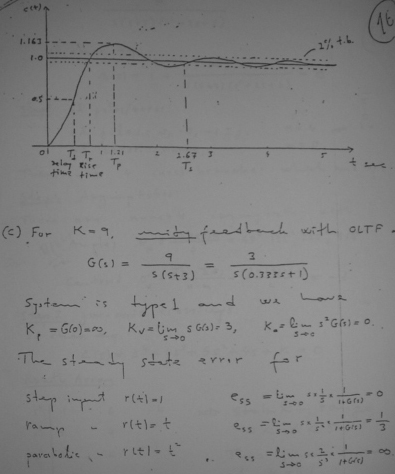 c(t)
16
1.163
2% t.b.
1.0
0.5
0 Td Tr 1 1.21 2 2.67 3 4 5 t sec.
Delay time Rise time Tp Ts
(c) For K=9, unity feedback with OLTF -
G(s) = 9 / s(s+3) = 3 / s(0.333s+1)
System is type 1 and we have
Kp = G(0) = ∞, Kv = lim s→0 s G(s) = 3, Ka = lim s→0 s² G(s) = 0.
The steady state error for
step input r(t)=1 ess = lim s→0 s × 1/s × 1/1+G(s) = 0
ramp - r(t) = t ess = lim s→0 s × 1/s² × 1/1+G(s) = 1/3
parabolic - r(t) = t² ess = lim s→0 s × 2/s³ × 1/1+G(s) = ∞